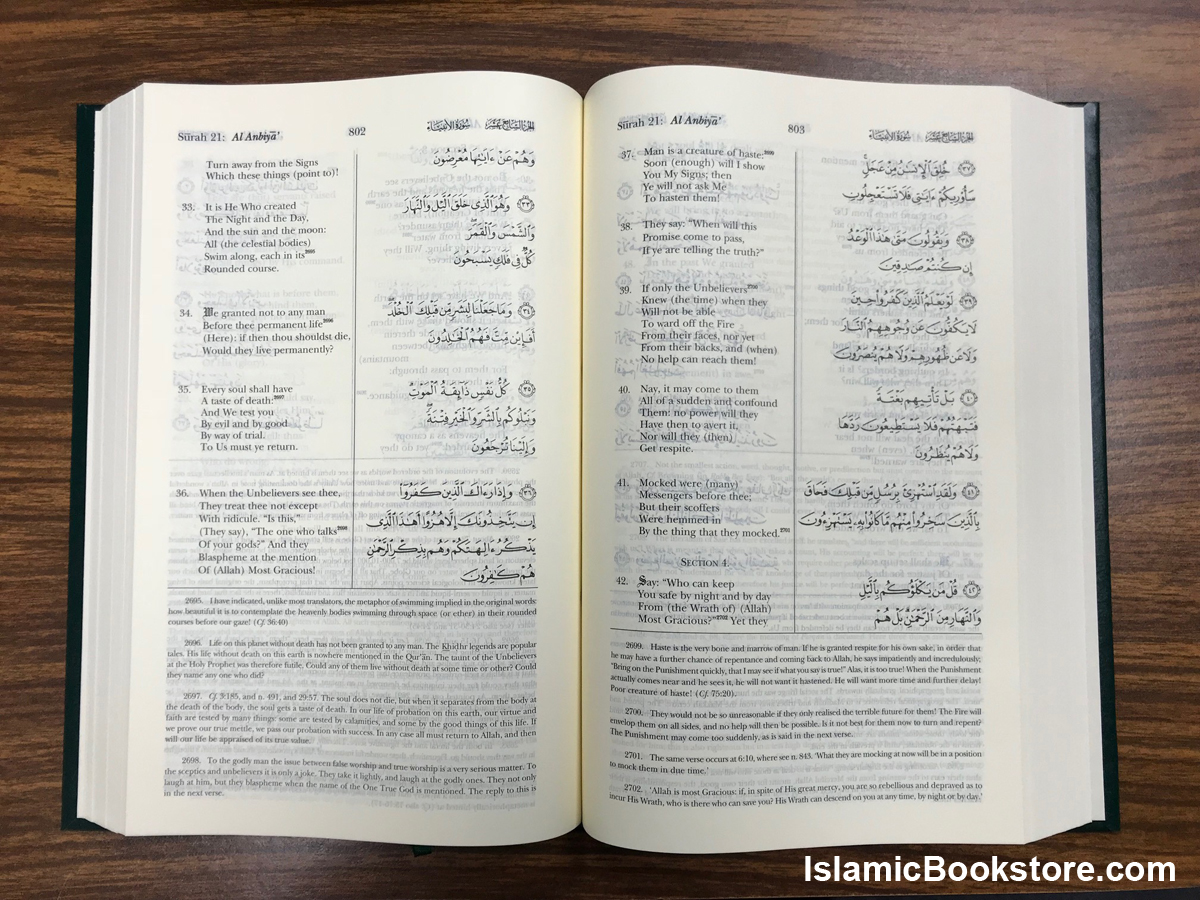 Sūrah 21: Al Anbiyā’
802
سُورَةُ الْأَنْبِيَاءِ
الجزء السابع عشر
Turn away from the Signs
Which these things (point to)!
وَهُمْ عَنْ ءَايَـٰتِهَا مُعْرِضُونَ
33. It is He Who created
The Night and the Day,
And the sun and the moon:
All (the celestial bodies)
Swim along, each in its2695
Rounded course.
﴿٣٣﴾ وَهُوَ ٱلَّذِى خَلَقَ ٱلَّيْلَ وَٱلنَّهَارَ
وَٱلشَّمْسَ وَٱلْقَمَرَ
كُلٌّ فِى فَلَكٍ يَسْبَحُونَ
34. We granted not to any man
Before thee permanent life2696
(Here): if then thou shouldst die,
Would they live permanently?
﴿٣٤﴾ وَمَا جَعَلْنَا لِبَشَرٍ مِّن قَبْلِكَ ٱلْخُلْدَ
أَفَإِي۟ن مِّتَّ فَهُمُ ٱلْخَـٰلِدُونَ
35. Every soul shall have
A taste of death:2697
And We test you
By evil and by good
By way of trial.
To Us must ye return.
﴿٣٥﴾ كُلُّ نَفْسٍ ذَآئِقَةُ ٱلْمَوْتِ
وَنَبْلُوكُم بِٱلشَّرِّ وَٱلْخَيْرِ فِتْنَةً
وَإِلَيْنَا تُرْجَعُونَ
36. When the Unbelievers see thee,
They treat thee not except
With ridicule. “Is this,”
(They say), “The one who talks2698
Of your gods?” And they
Blaspheme at the mention
Of (Allah) Most Gracious!
﴿٣٦﴾ وَإِذَا رَءَاكَ ٱلَّذِينَ كَفَرُوٓا۟
إِن يَتَّخِذُونَكَ إِلَّا هُزُوًا أَهَـٰذَا ٱلَّذِى
يَذْكُرُ ءَالِهَتَكُمْ وَهُم بِذِكْرِ ٱلرَّحْمَـٰنِ
هُمْ كَـٰفِرُونَ
2695. I have indicated, unlike most translators, the metaphor of swimming implied in the original words
how beautiful it is to contemplate the heavenly bodies swimming through space (or ether) in their rounded
courses before our gaze! (Cf. 36:40)
2696. Life on this planet without death has not been granted to any man. The Khidhr legends are popular
tales. His life without death on this earth is nowhere mentioned in the Qur’ān. The taunt of the Unbelievers
at the Holy Prophet was therefore futile, Could any of them live without death at some time or other? Could
they name any one who did?
2697. Cf. 3:185, and n. 491, and 29:57. The soul does not die, but when it separates from the body at
the death of the body, the soul gets a taste of death. In our life of probation on this earth, our virtue and
faith are tested by many things: some are tested by calamities, and some by the good things of this life. If
we prove our true mettle, we pass our probation with success. In any case all must return to Allah, and then
will our life be appraised of its true value.
2698. To the godly man the issue between false worship and true worship is a very serious matter. To
the sceptics and unbelievers it is only a joke. They take it lightly, and laugh at the godly ones. They not only
laugh at him, but they blaspheme when the name of the One True God is mentioned. The reply to this is
in the next verse.
Sūrah 21: Al Anbiyā’
803
سُورَةُ الْأَنْبِيَاءِ
الجزء السابع عشر
37. Man is a creature of haste:2699
Soon (enough) will I show
You My Signs; then
Ye will not ask Me
To hasten them!
﴿٣٧﴾ خُلِقَ ٱلْإِنسَـٰنُ مِنْ عَجَلٍ
سَأُو۟رِيكُمْ ءَايَـٰتِى فَلَا تَسْتَعْجِلُونِ
38. They say: “When will this
Promise come to pass,
If ye are telling the truth?”
﴿٣٨﴾ وَيَقُولُونَ مَتَىٰ هَـٰذَا ٱلْوَعْدُ
إِن كُنتُمْ صَـٰدِقِينَ
39. If only the Unbelievers2700
Knew (the time) when they
Will not be able
To ward off the Fire
From their faces, nor yet
From their backs, and (when)
No help can reach them!
﴿٣٩﴾ لَوْ يَعْلَمُ ٱلَّذِينَ كَفَرُوا۟ حِينَ
لَا يَكُفُّونَ عَن وُجُوهِهِمُ ٱلنَّارَ
وَلَا عَن ظُهُورِهِمْ وَلَا هُمْ يُنصَرُونَ
40. Nay, it may come to them
All of a sudden and confound
Them: no power will they
Have then to avert it,
Nor will they (then)
Get respite.
﴿٤٠﴾ بَلْ تَأْتِيهِم بَغْتَةً
فَتَبْهَتُهُمْ فَلَا يَسْتَطِيعُونَ رَدَّهَا
وَلَا هُمْ يُنظَرُونَ
41. Mocked were (many)
Messengers before thee;
But their scoffers
Were hemmed in
By the thing that they mocked.2701
﴿٤١﴾ وَلَقَدِ ٱسْتُهْزِئَ بِرُسُلٍ مِّن قَبْلِكَ فَحَاقَ
بِٱلَّذِينَ سَخِرُوا۟ مِنْهُم مَّا كَانُوا۟ بِهِۦ يَسْتَهْزِءُونَ
SECTION 4.
42. Say: “Who can keep
You safe by night and by day
From (the Wrath of) (Allah)
Most Gracious?”2702 Yet they
﴿٤٢﴾ قُلْ مَن يَكْلَؤُكُم بِٱلَّيْلِ
وَٱلنَّهَارِ مِنَ ٱلرَّحْمَـٰنِ بَلْ هُمْ
2699. Haste is the very bone and marrow of man. If he is granted respite for his own sake, in order that
he may have a further chance of repentance and coming back to Allah, he says impatiently and incredulously:
"Bring on the Punishment quickly, that I may see if what you say is true!" Alas, it is too true! When the Punishment
actually comes near and he sees it, he will not want it hastened. He will want more time and further delay!
Poor creature of haste! (Cf. 75:20).
2700. They would not be so unreasonable if they only realised the terrible future for them! The Fire will
envelop them on all sides, and no help will then be possible. Is it not best for them now to turn and repent?
The Punishment may come too suddenly, as is said in the next verse.
2701. The same verse occurs at 6:10, where see n. 843. ‘What they are mocking at now will be in a position
to mock them in due time.’
2702. ‘Allah is most Gracious: if, in spite of His great mercy, you are so rebellious and depraved as to
incur His Wrath, who is there who can save you? His Wrath can descend on you at any time, by night or by day.’
IslamicBookstore.com